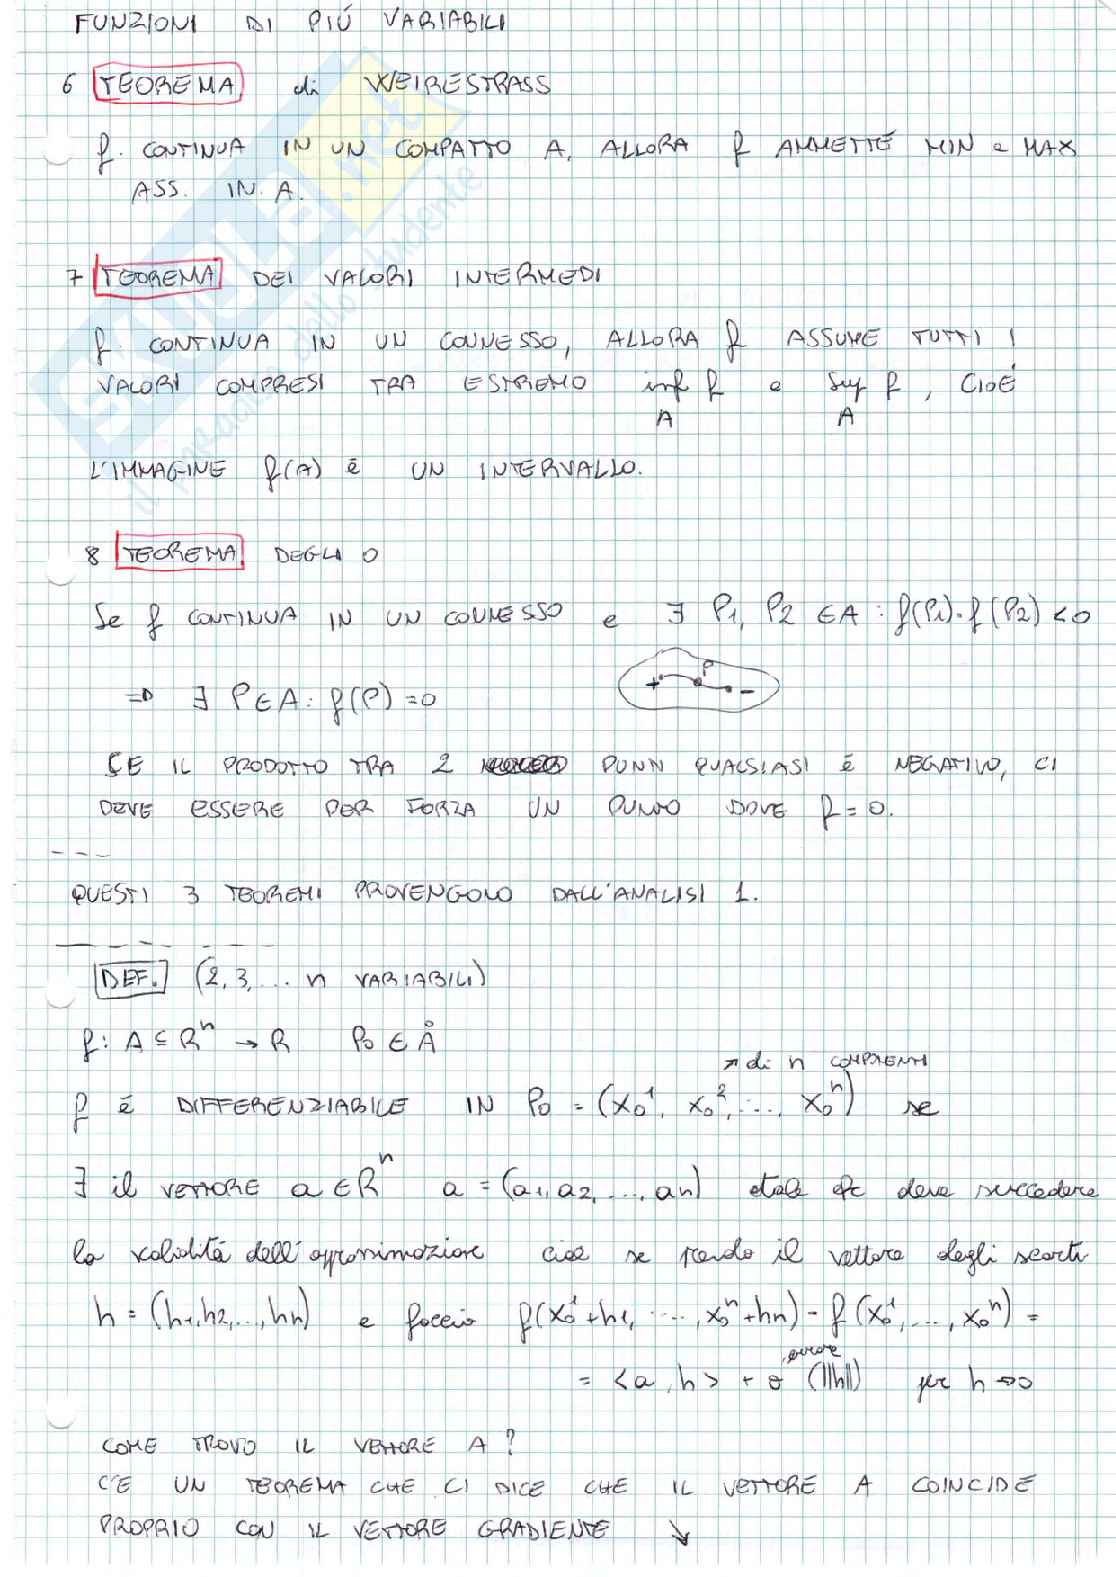 FUNZIONI DI PIÚ VARIABILI
6 TEOREMA di WEIRESTRASS
f. CONTINUA IN UN COMPATTO A, ALLORA f AMMETTE MIN e MAX
ASS. IN A.
7 TEOREMA DEI VALORI INTERMEDI
f. CONTINUA IN UN CONNESSO, ALLORA f ASSUME TUTTI I
VALORI COMPRESI TRA ESTREMO inf f e Sup f, CIOÉ
A A
L'IMMAGINE f(A) é UN INTERVALLO.
8 TEOREMA DEGLI 0
Se f CONTINUA IN UN CONNESSO e ∃ P1, P2 ∈A : f(P1)·f(P2)<0
⇒ ∃ P∈A: f(P)=0
+ P -
SE IL PRODOTTO TRA 2 PUNTI QUALSIASI é NEGATIVO, CI
DEVE ESSERE PER FORZA UN PUNTO DOVE f=0.
QUESTI 3 TEOREMI PROVENGOLO DALL'ANALISI 1.
DEF. (2,3,... n VARIABILI)
f: A ⊆ Rⁿ → R P0 ∈ Å
↗ di n COMPONENTI
f é DIFFERENZIABILE IN P0 = (x₀¹, x₀², ..., x₀ⁿ) se
∃ il VETTORE a ∈Rⁿ a = (a1,a2,...,an) tale deve succedere
la validitá dell'approssimazione cioé se prendo il vettore degli scarti
h = (h1,h2,...,hn) e faccio f(x₀¹+h1, ..., x₀ⁿ+hn) - f(x₀¹,...,x₀ⁿ) =
errore
= <a,h> + o(||h||) per h→0
COME TROVO IL VETTORE A?
C'É UN TEOREMA CHE CI DICE CHE IL VETTORE A COINCIDE
PROPRIO CON IL VETTORE GRADIENTE ↘
SKUOLA.net